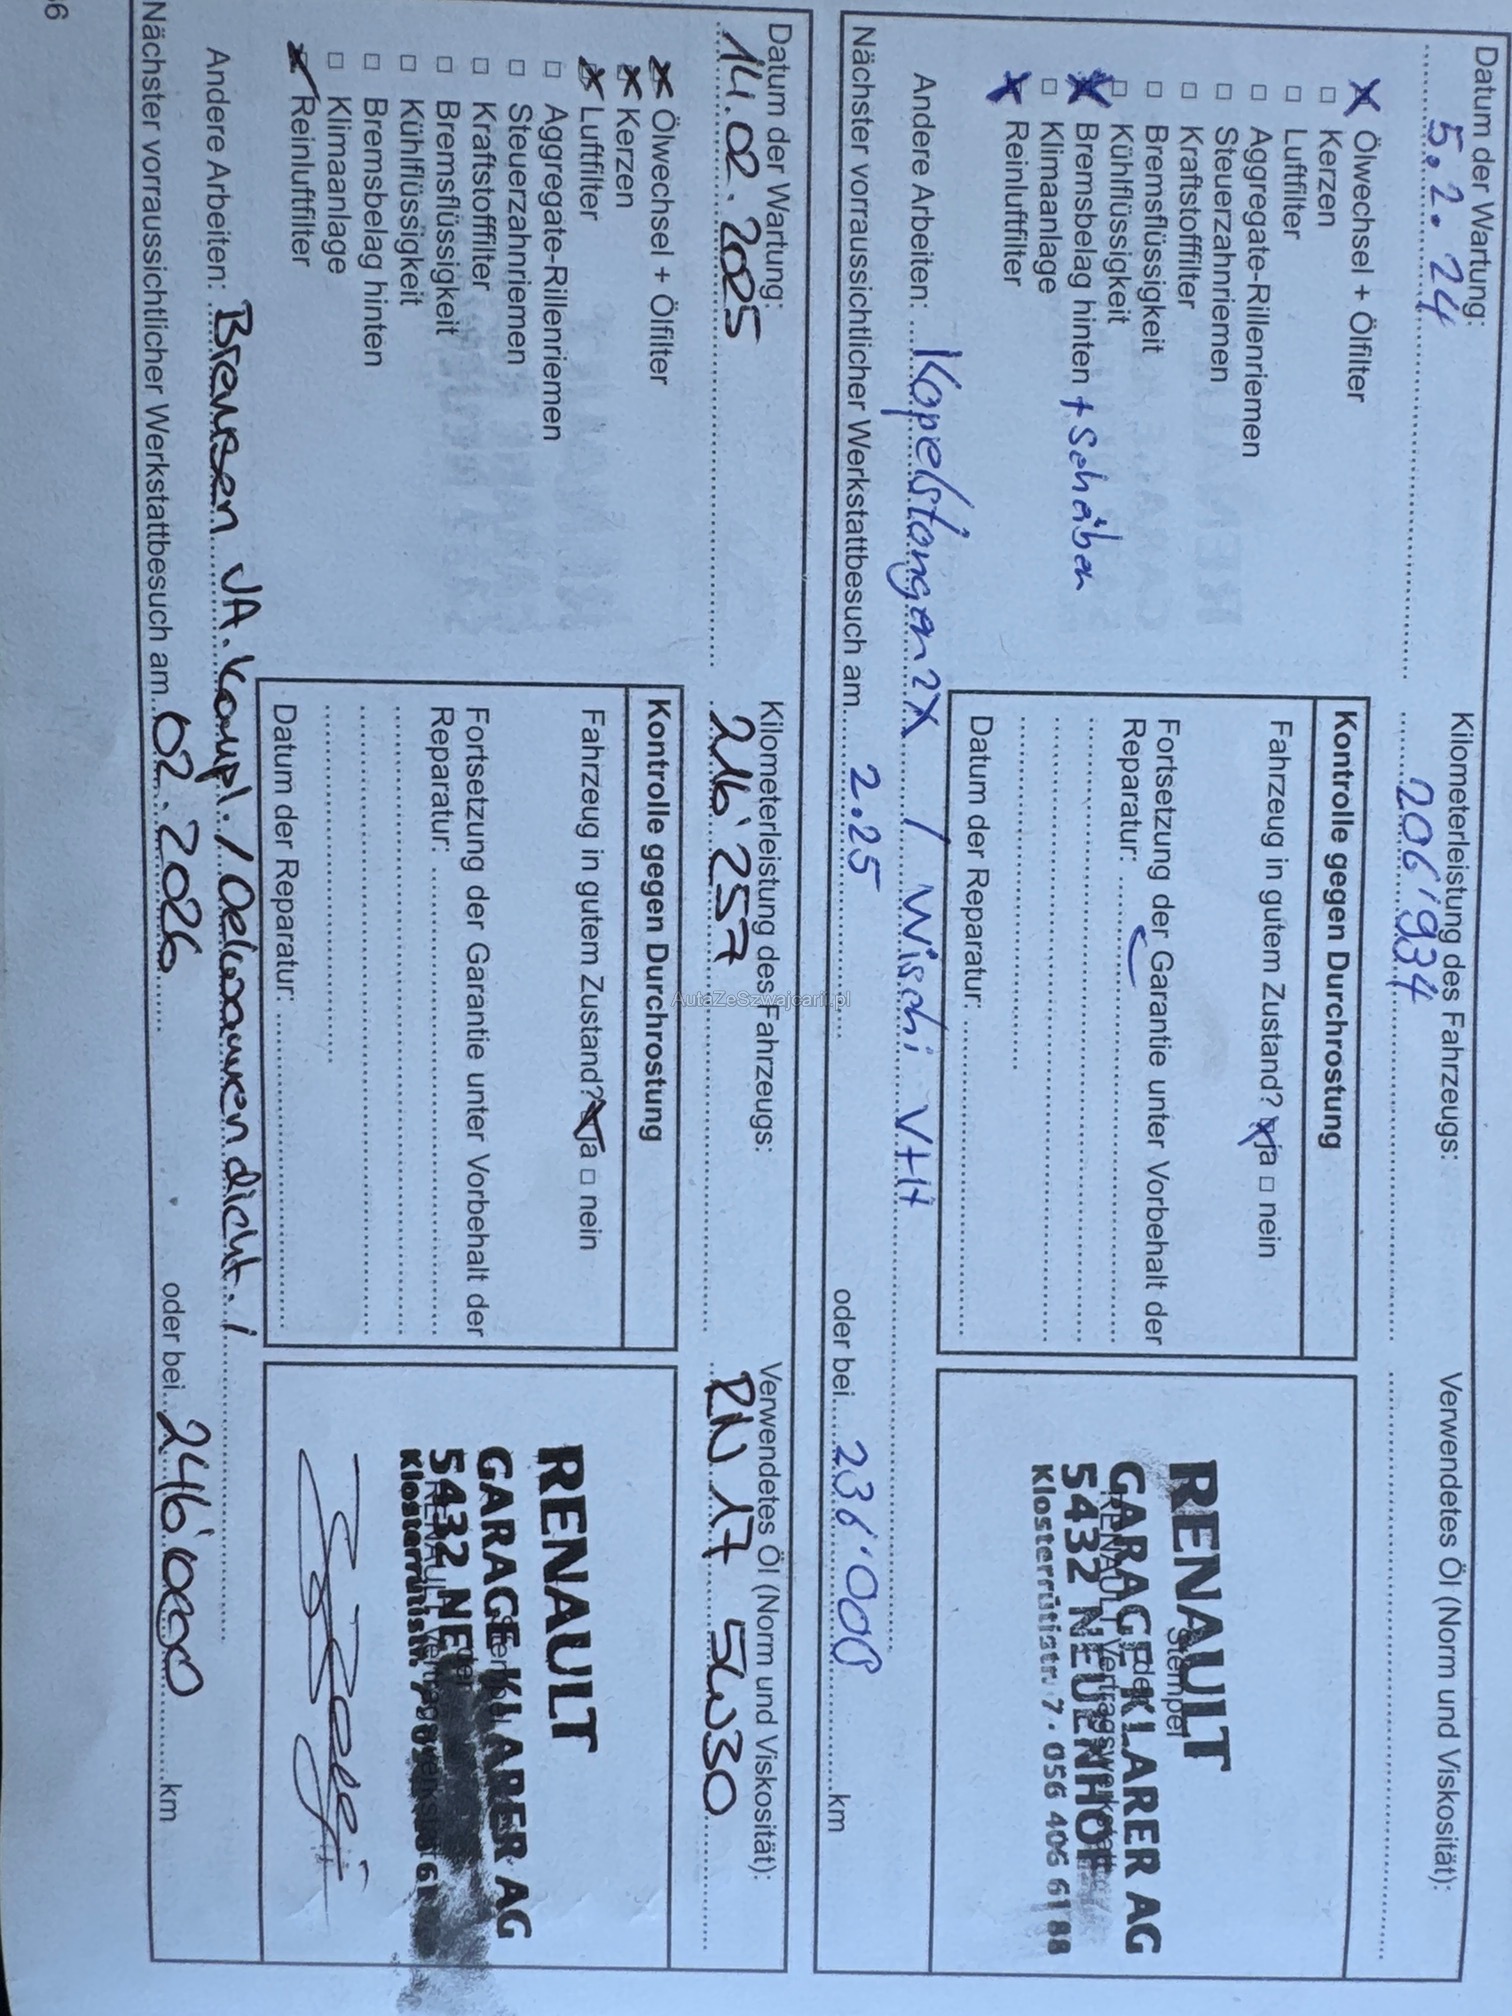 Datum der Wartung:
Kilometerleistung des Fahrzeugs:
Verwendetes Öl (Norm und Viskosität):
5.2.24
206'934
Ölwechsel + Ölfilter
Kerzen
Luftfilter
Aggregate-Rillenriemen
Steuerzahnriemen
Kraftstofffilter
Bremsflüssigkeit
Kühlflüssigkeit
Bremsbelag hinten + Scheiben
Klimaanlage
Reinluftfilter
Kontrolle gegen Durchrostung
Fahrzeug in gutem Zustand? ja nein
Fortsetzung der Garantie unter Vorbehalt der
Reparatur:
Datum der Reparatur:
Stempel
RENAULT
GARAGE KLARER AG
5432 NEUENHOF
Klosterrütistr. 7 · 056 406 61 88
Andere Arbeiten: Kopelstangen 2X / Wischi V+H
Nächster vorraussichtlicher Werkstattbesuch am 2.25 oder bei 236'000 km
Datum der Wartung:
Kilometerleistung des Fahrzeugs:
Verwendetes Öl (Norm und Viskosität):
14.02.2025
216'257
RN 17 5W30
Ölwechsel + Ölfilter
Kerzen
Luftfilter
Aggregate-Rillenriemen
Steuerzahnriemen
Kraftstofffilter
Bremsflüssigkeit
Kühlflüssigkeit
Bremsbelag hinten
Klimaanlage
Reinluftfilter
Kontrolle gegen Durchrostung
Fahrzeug in gutem Zustand? ja nein
Fortsetzung der Garantie unter Vorbehalt der
Reparatur:
Datum der Reparatur:
RENAULT
GARAGE KLARER AG
5432
Klosterrütistr. 7
Andere Arbeiten: Bremsen VA. kompl. / Oelwannendicht. /
Nächster vorraussichtlicher Werkstattbesuch am 02.2026 oder bei 246'000 km
AutaZeSzwajcarii.pl